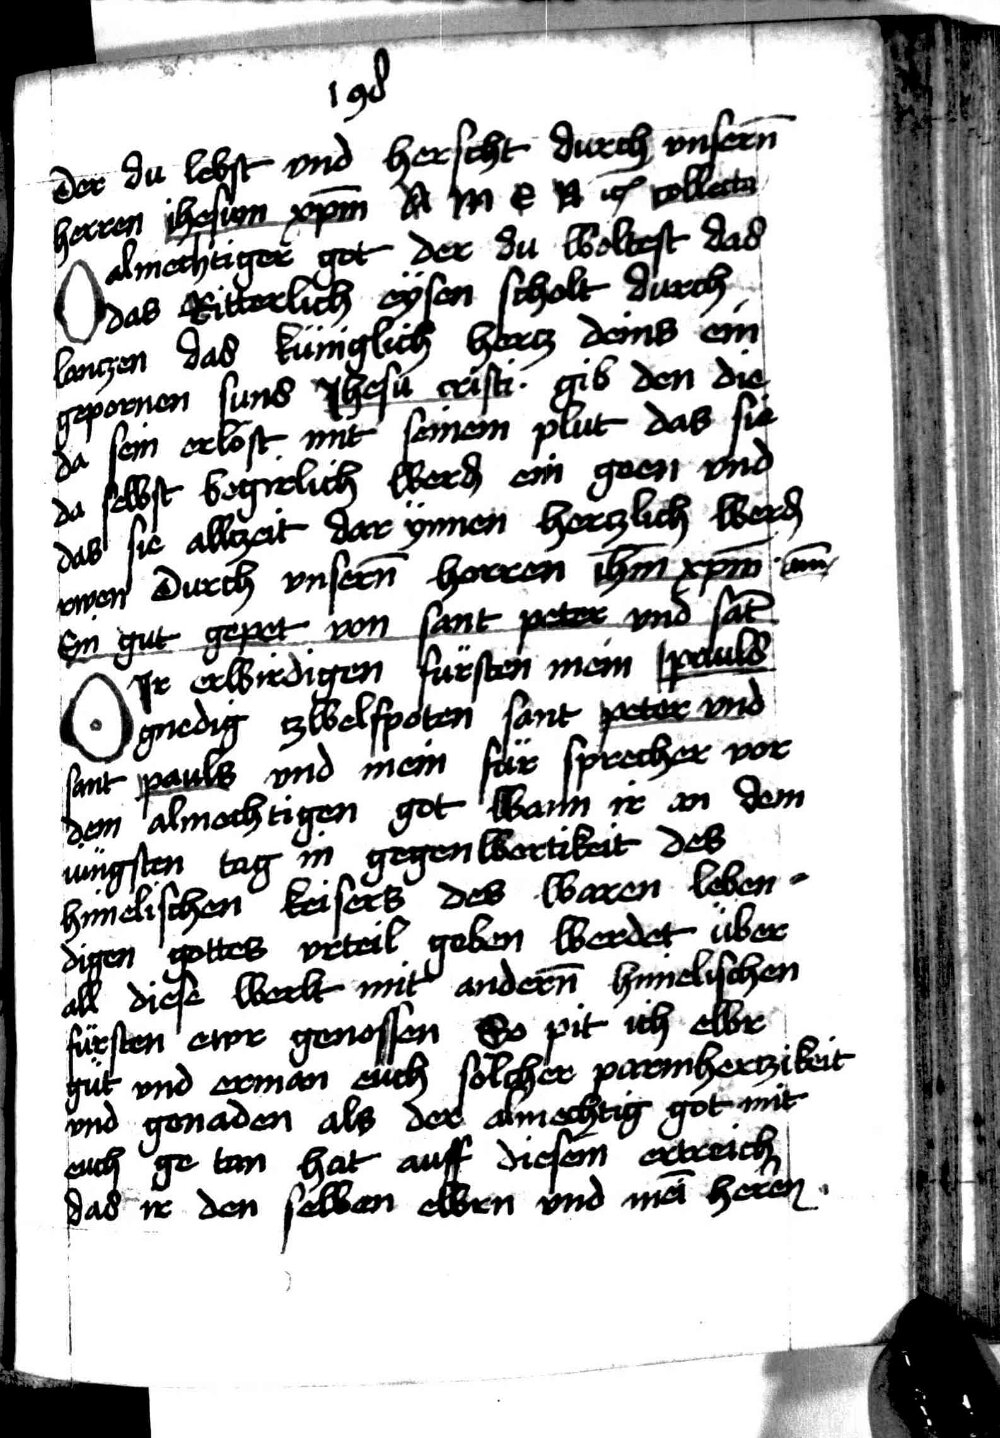 198
Der du lebst vnd herscht durch vnsern̄
herren ihesum xpm̄ A M E N collecta
O almechtiger got der du woltest das
das Ritterlich eÿsen scholt durch
lantzen das küniglich hertz deins ein
gepornen suns Jhesu cristi · gib den die
da sein erlöst mit seinem plut das sie
da selbst begirlich werd ein geen vnd
das sie allczeit dar ÿnnen hertzlich werd
durch vnsern̄ herren ihm̄ xpm̄ · am̄
Ein gut gepet von sant peter vnd sāt
O Ir erwirdigen fürsten mein pauls
gnedig zwelfpoten sant peter vnd
sant pauls vnd mein für sprecher vor
dem almechtigen got wann ir an dem
iüngsten tag in gegenwertikeit des
himelischen keisers des waren leben-
digen gottes vrteil geben werdet über
all diese werlt mit andern̄ himelischen
fürsten ewr genossen So pit ich ewr
güt vnd erman euch sölcher parmhertzikeit
vnd genaden als der almechtig got mit
euch ge tan hat auff diesem ertreich
das ir den selben ewrn vnd mei̅ herēn